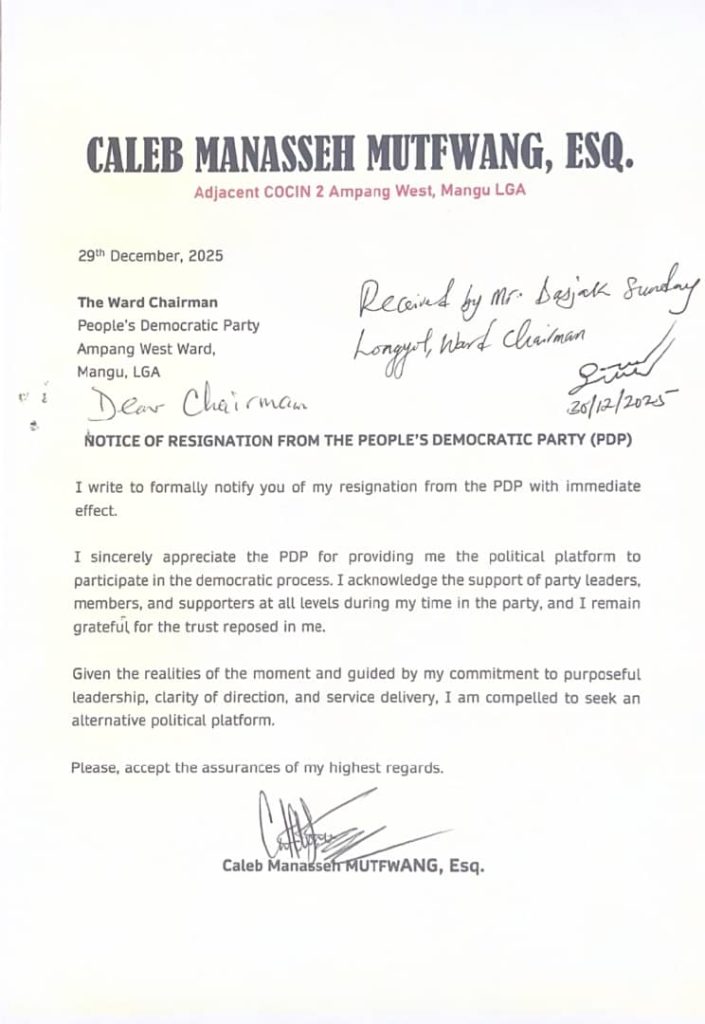 CALEB MANASSEH MUTFWANG, ESQ.
Adjacent COCIN 2 Ampang West, Mangu LGA
29th December, 2025
Received by Mr. Dasjak Sunday
Longyol, Ward Chairman
30/12/2025
The Ward Chairman
People's Democratic Party
Ampang West Ward,
Mangu, LGA
Dear Chairman
NOTICE OF RESIGNATION FROM THE PEOPLE'S DEMOCRATIC PARTY (PDP)
I write to formally notify you of my resignation from the PDP with immediate
effect.
I sincerely appreciate the PDP for providing me the political platform to
participate in the democratic process. I acknowledge the support of party leaders,
members, and supporters at all levels during my time in the party, and I remain
grateful for the trust reposed in me.
Given the realities of the moment and guided by my commitment to purposeful
leadership, clarity of direction, and service delivery, I am compelled to seek an
alternative political platform.
Please, accept the assurances of my highest regards.
Caleb Manasseh MUTFWANG, Esq.